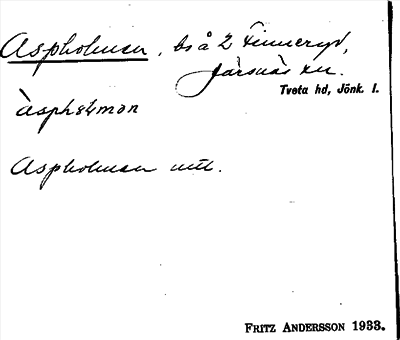 Aspholmen, bs å 2 Finneryd,
Järsnäs sn.
Tveta hd, Jönk. l.
Àsphɷlmən
Aspholmen utt.
FRITZ ANDERSSON 1933.